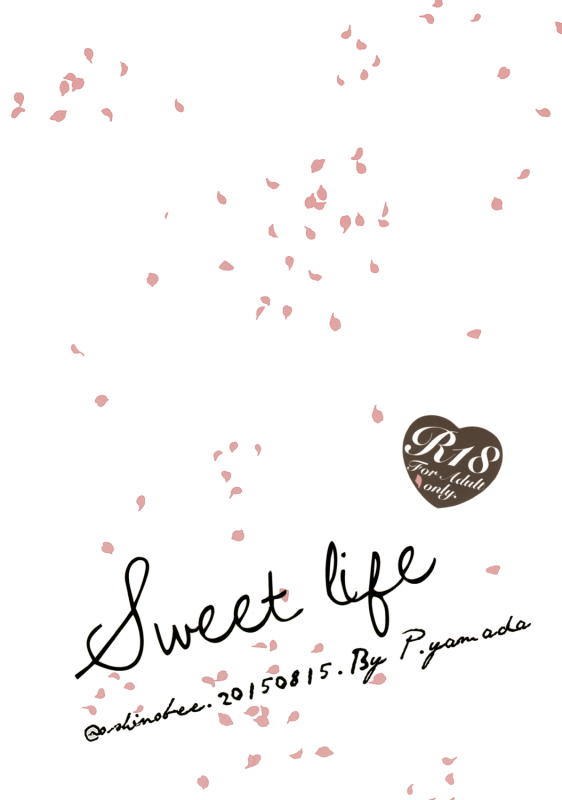 R18
For Adult
only.
Sweet life
@o-shinobee.20150815.By P.yamada